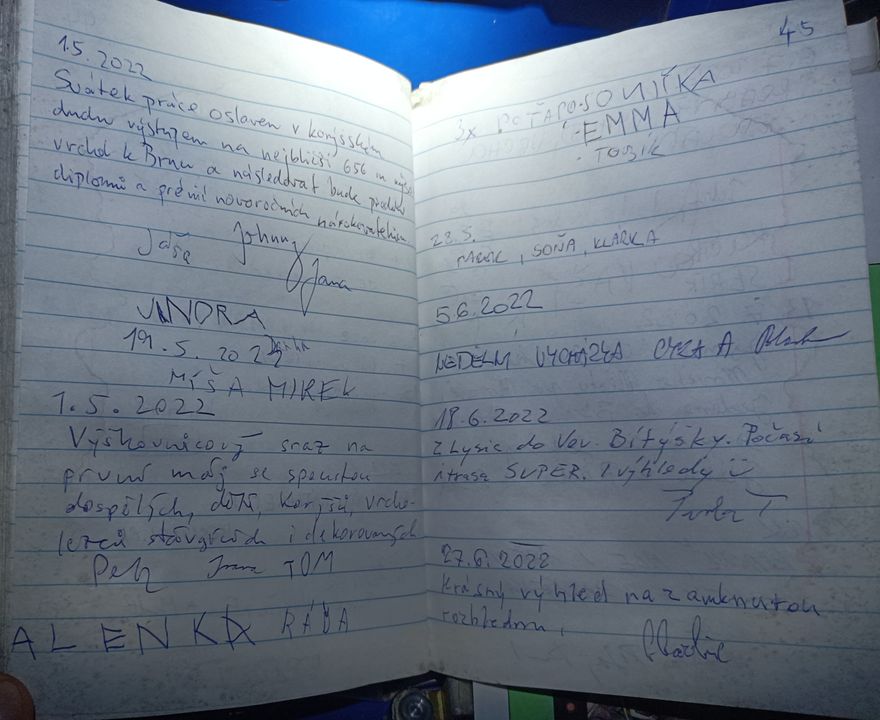 1.5.2022
Svátek práce oslaven v korýšském
duchu výstupem na nejbližší 656 m
vrchol k Brnu a následovat bude
diplomů a prémií novoročních
Jáša Johnny Jana
JINDRA
19.5.2022
MÍŠA MIREK
1.5.2022
Výškovnicový sraz na
první máj se spoustou
dospělých, dětí, korýšů, vrcho-
lezců stávajících i dekorovaných
Petr Jana TOM
ALENKA RÁĎA
45
3x
EMMA
TOBÍK
28.5.
SOŇA, KLÁRKA
5.6.2022
NEDĚLNÍ VYCHÁZKA
18.6.2022
z Lysic do Vev. Bítýšky. Počasí
i trasa SUPER. I výhledy ü
27.6.2022
Krásný výhled na zamknutou
rozhlednu,